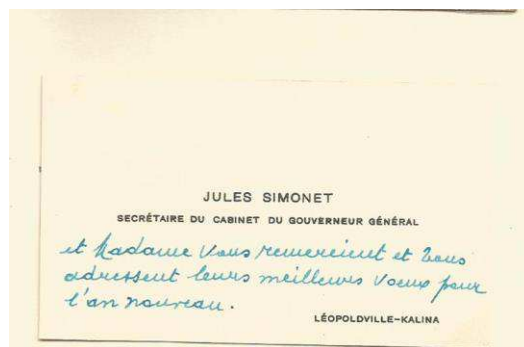 JULES SIMONET
SECRÉTAIRE DU CABINET DU GOUVERNEUR GÉNÉRAL
et Madame vous remercient et vous
adressent leurs meilleurs voeux pour
l'an nouveau.
LÉOPOLDVILLE-KALINA